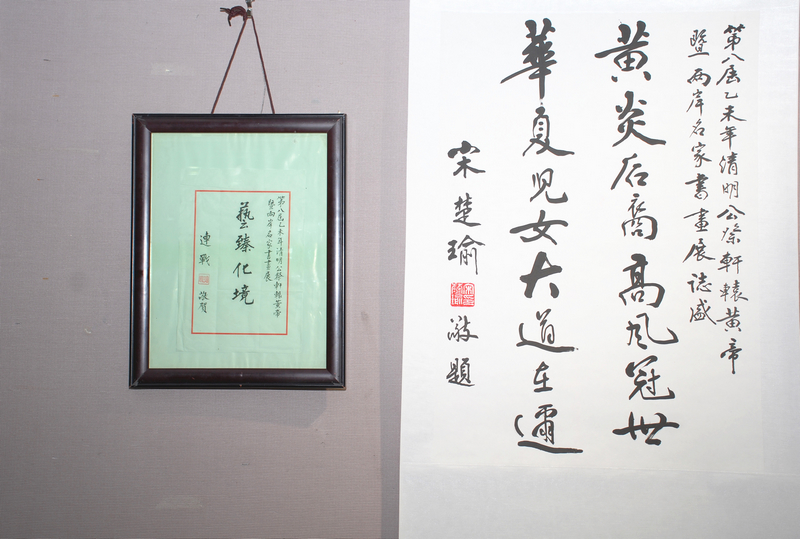 第八屆乙未年清明公祭軒轅黃帝
暨兩岸名家書畫展
藝臻化境
連戰
敬賀
第八屆乙未年清明公祭軒轅黃帝
暨兩岸名家書畫展誌盛
黃炎后裔高風冠世
華夏兒女大道在邇
宋楚瑜
敬題